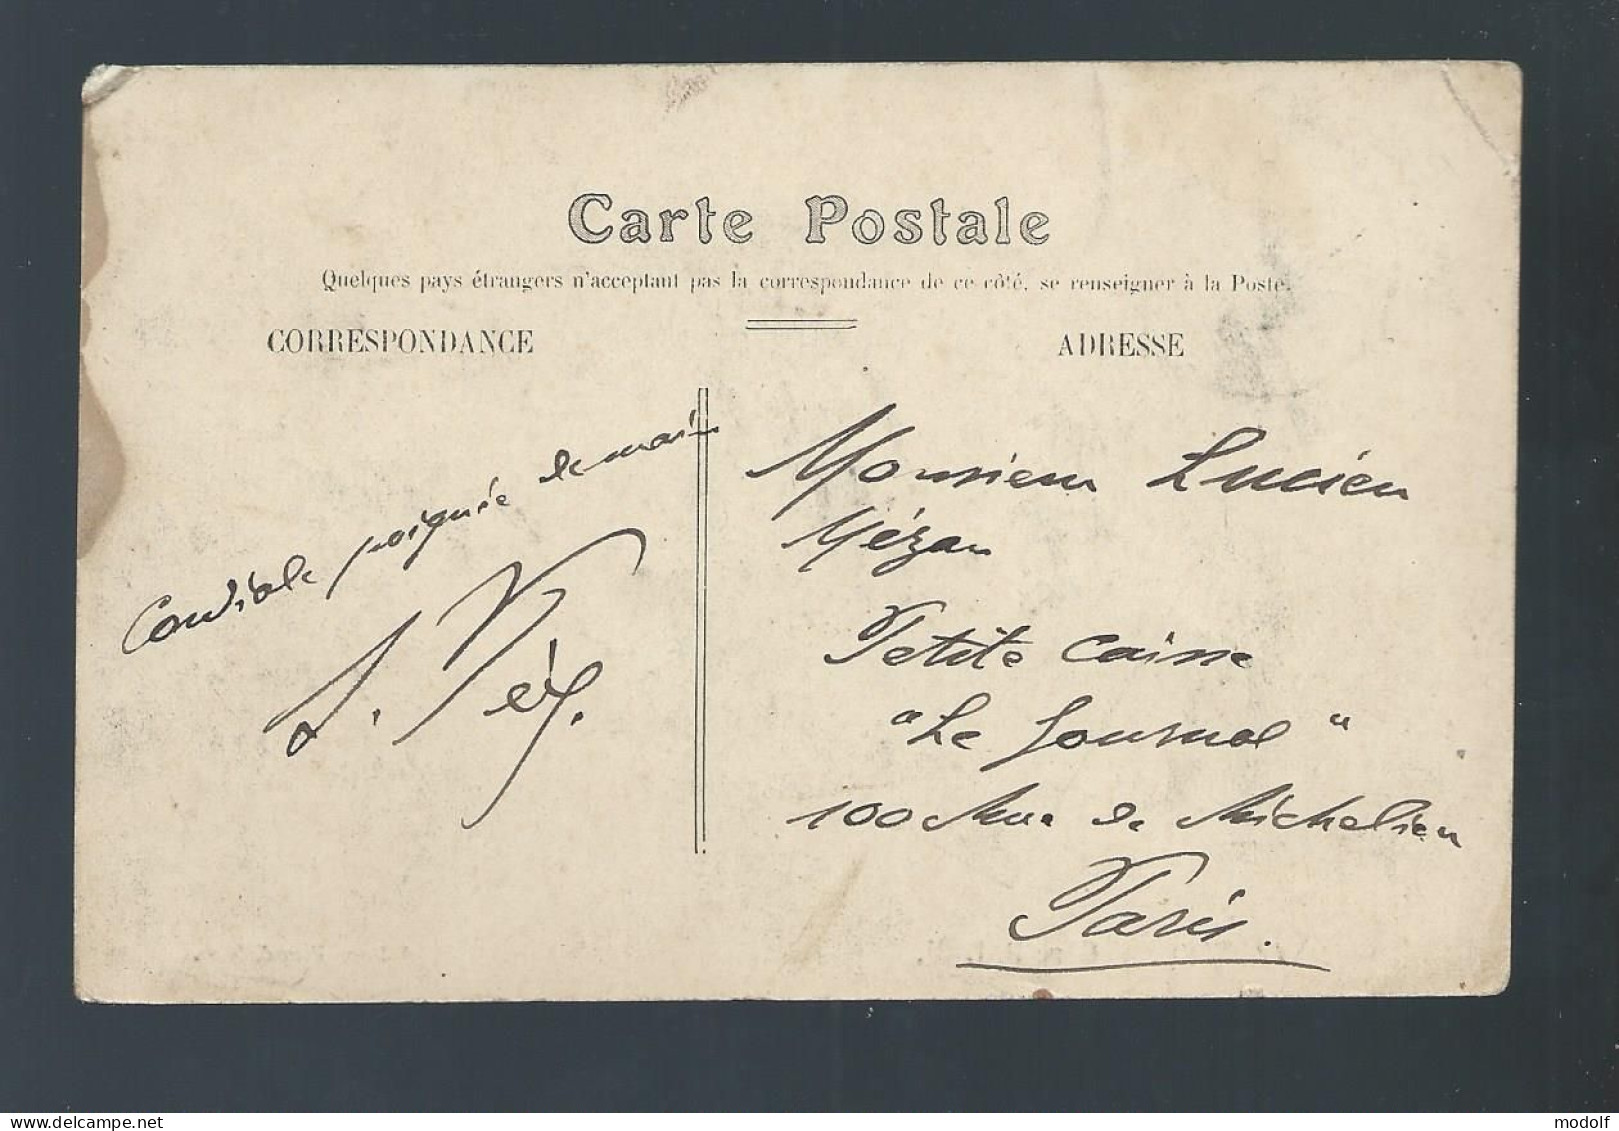 Carte Postale
Quelques pays étrangers n'acceptant pas la correspondance de ce côté, se renseigner à la Poste.
CORRESPONDANCE
ADRESSE
Cordiale poignée de main
Monsieur Lucien
Mézan
Petite Caisse
"Le Journal"
100 Rue de Richelieu
Paris.
modolf